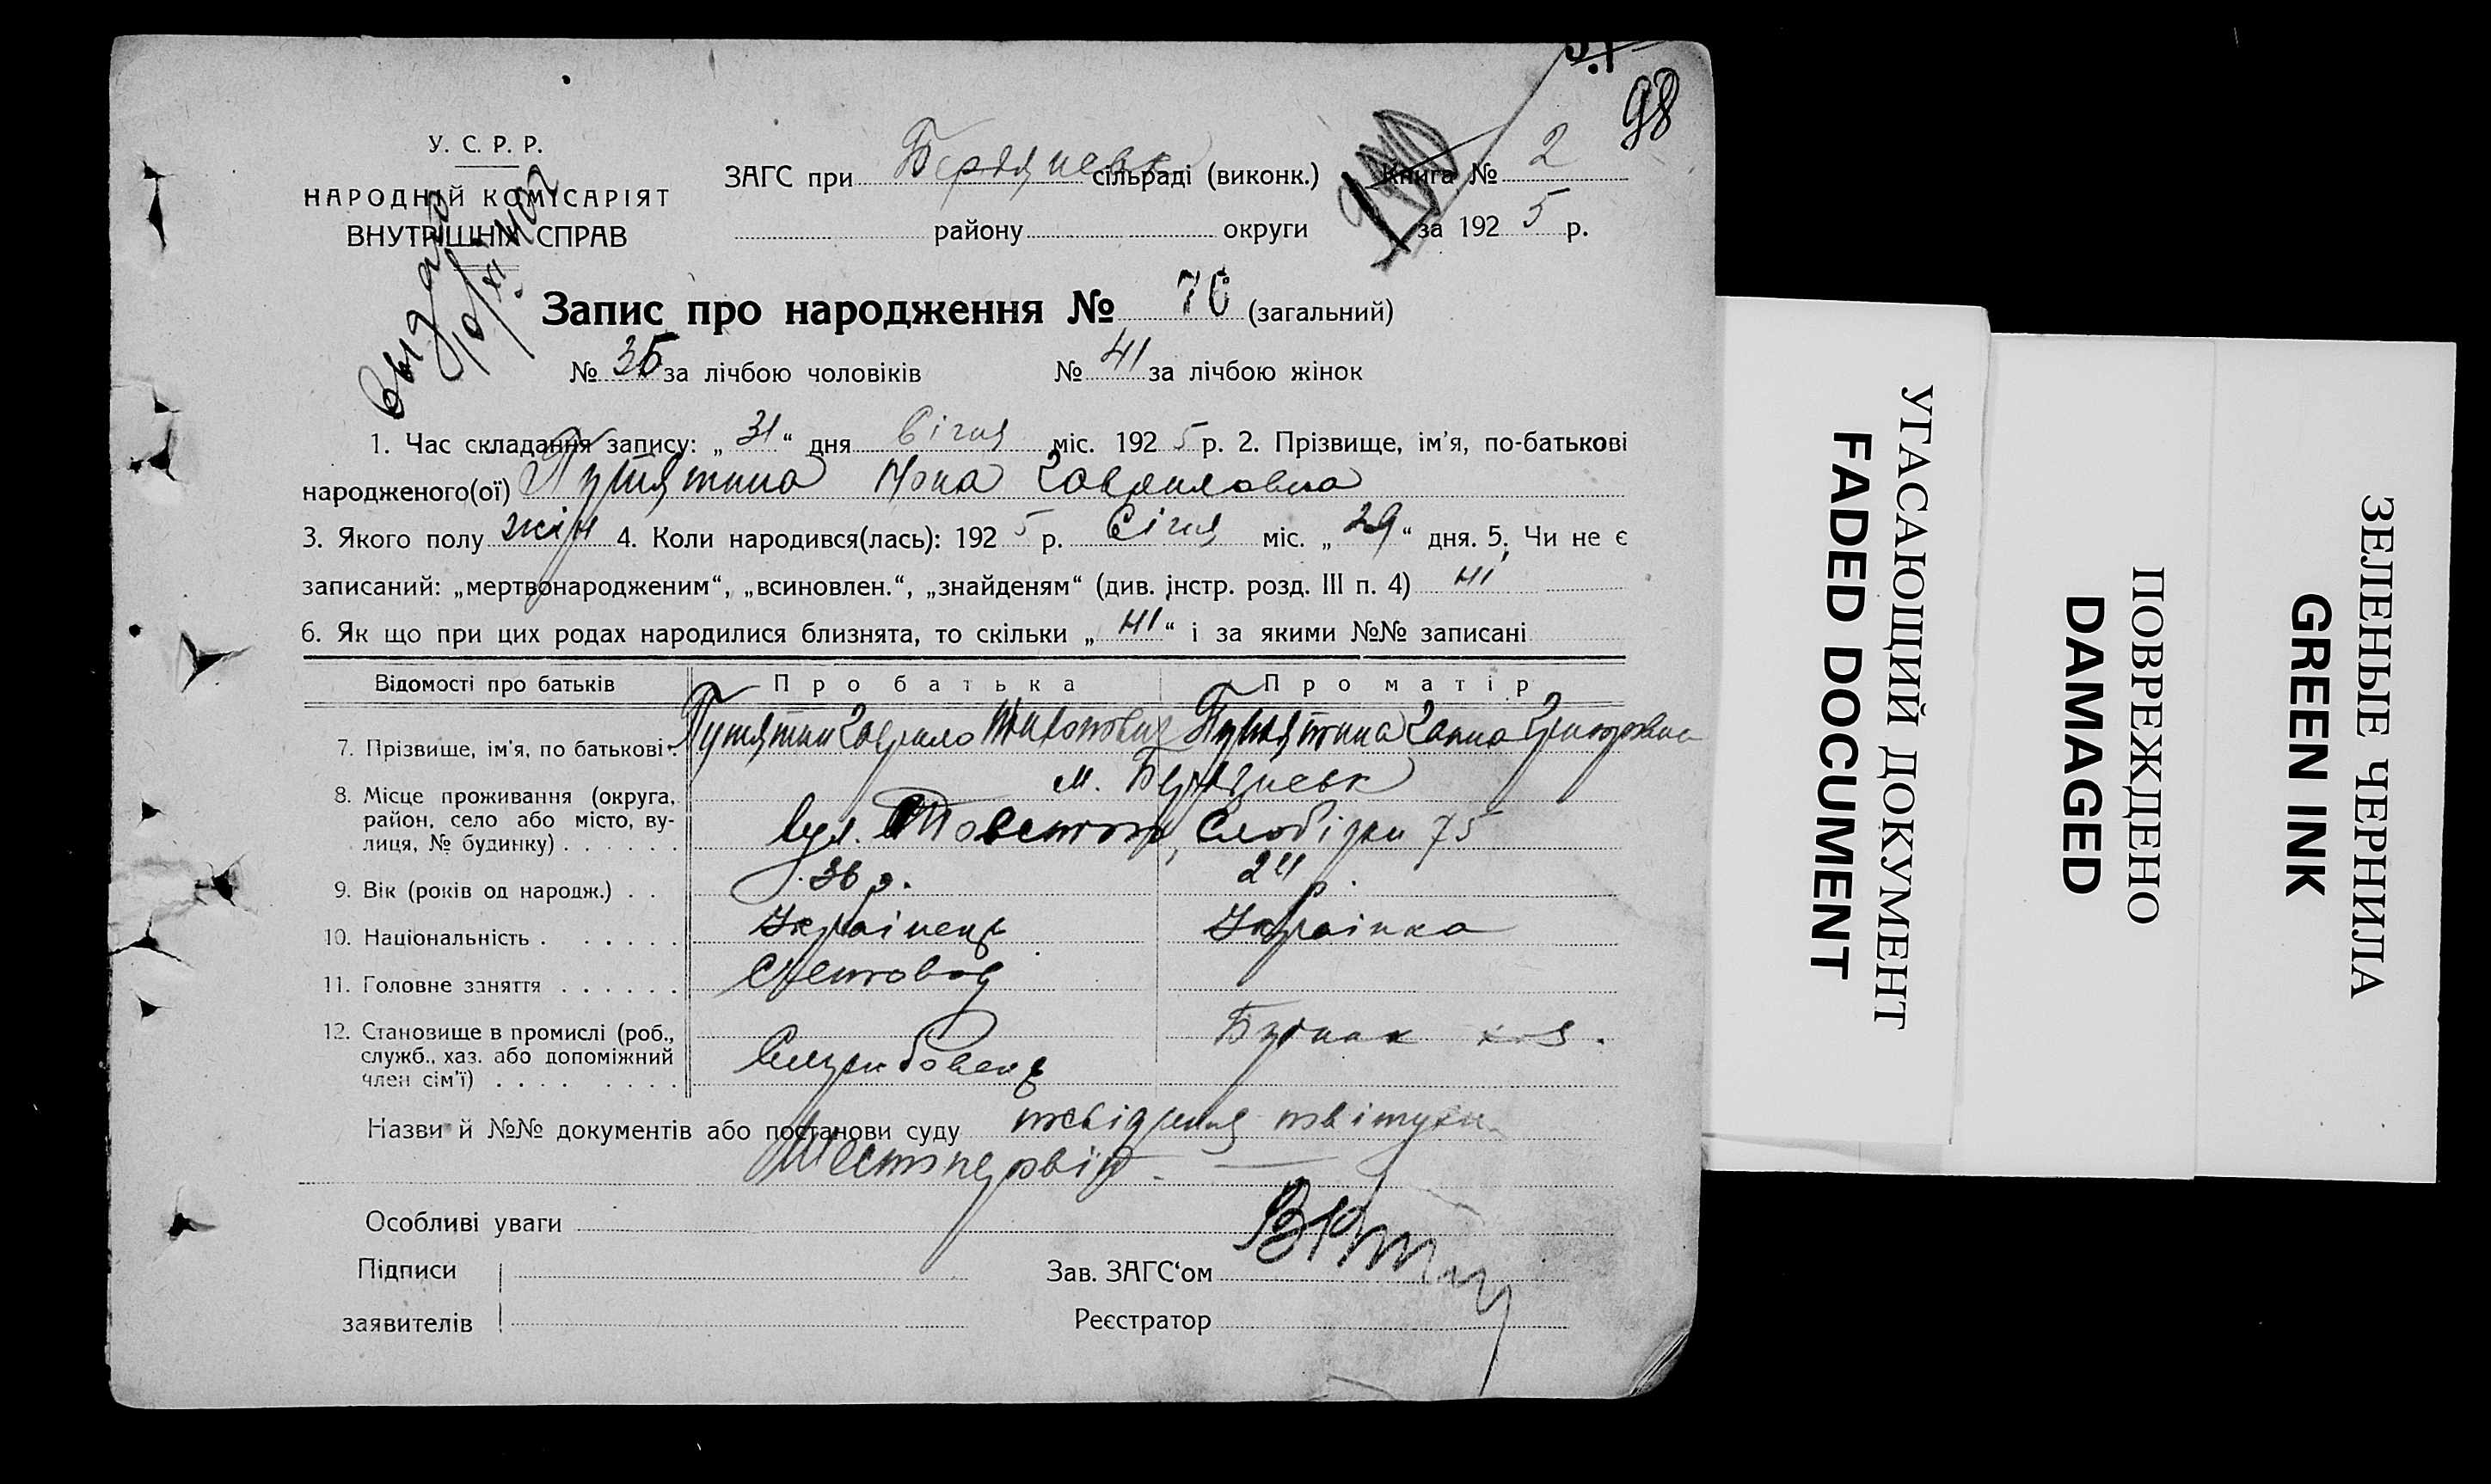 98
У. С. Р. Р.
НАРОДНІЙ КОМІСАРІЯТ
ВНУТРІШНІХ СПРАВ
ЗАГС при Бердянськ сільраді (виконк.) Книга № 2
району округи за 192 5 р.
выдано
Запис про народження № 76 (загальний)
№ 35 за лічбою чоловіків № 41 за лічбою жінок
1. Час складання запису: „ 31 “ дня Січня міс. 192 5 р. 2. Прізвище, ім'я, по-батькові
народженого(ої) Путятина Нона Гавриловна
3. Якого полу жін 4. Коли народився(лась): 192 5 р. Січня міс. „ 29 “ дня. 5. Чи не є
записаний: „мертвонародженим“, „всиновлен.“, „знайденям“ (див. інстр. розд. III п. 4) ні
6. Як що при цих родах народилися близнята, то скільки „ ні “ і за якими №№ записані
Відомості про батьків Про батька Про матір
7. Прізвище, ім'я, по батькові . Путятин Гаврило Тихонович Путятина Ганна Григоровна
8. Місце проживання (округа, район, село або місто, вулиця, № будинку) . . . . . . м. Бердянськ
вул. Товстого, Слобідки 75
9. Вік (років од народж.) . . 36 р. 24 р.
10. Національність . . . . . . Українець Українка
11. Головне заняття . . . . . . Счетовод
12. Становище в промислі (роб., служб., хаз. або допоміжний член сім'ї) . . . . . . . . Службовець
Назви й №№ документів або постанови суду посвідченя повітухи
Шестопервій
Особливі уваги
Підписи
заявителів
Зав. ЗАГС‘ом
Реєстратор
УГАСАЮЩИЙ ДОКУМЕНТ
FADED DOCUMENT
ПОВРЕЖДЕНО
DAMAGED
ЗЕЛЕНЫЕ ЧЕРНИЛА
GREEN INK